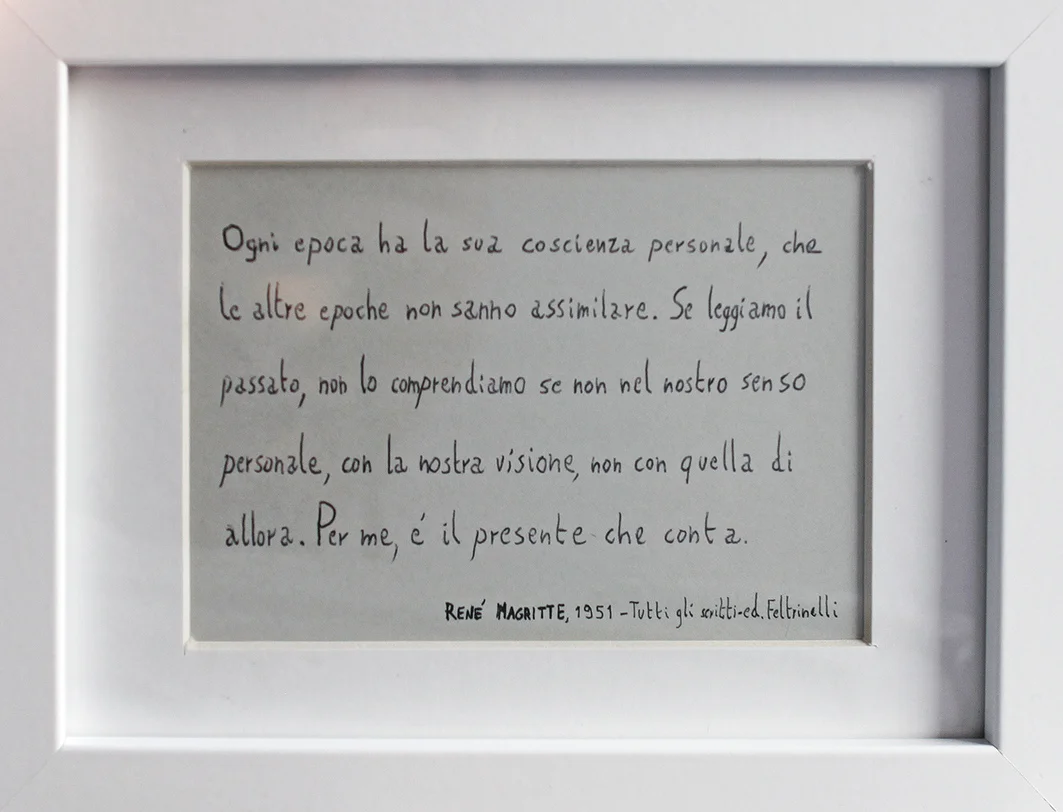 Ogni epoca ha la sua coscienza personale, che
le altre epoche non sanno assimilare. Se leggiamo il
passato, non lo comprendiamo se non nel nostro senso
personale, con la nostra visione, non con quella di
allora. Per me, é il presente che conta.
RENÉ MAGRITTE, 1951 - Tutti gli scritti - ed. Feltrinelli